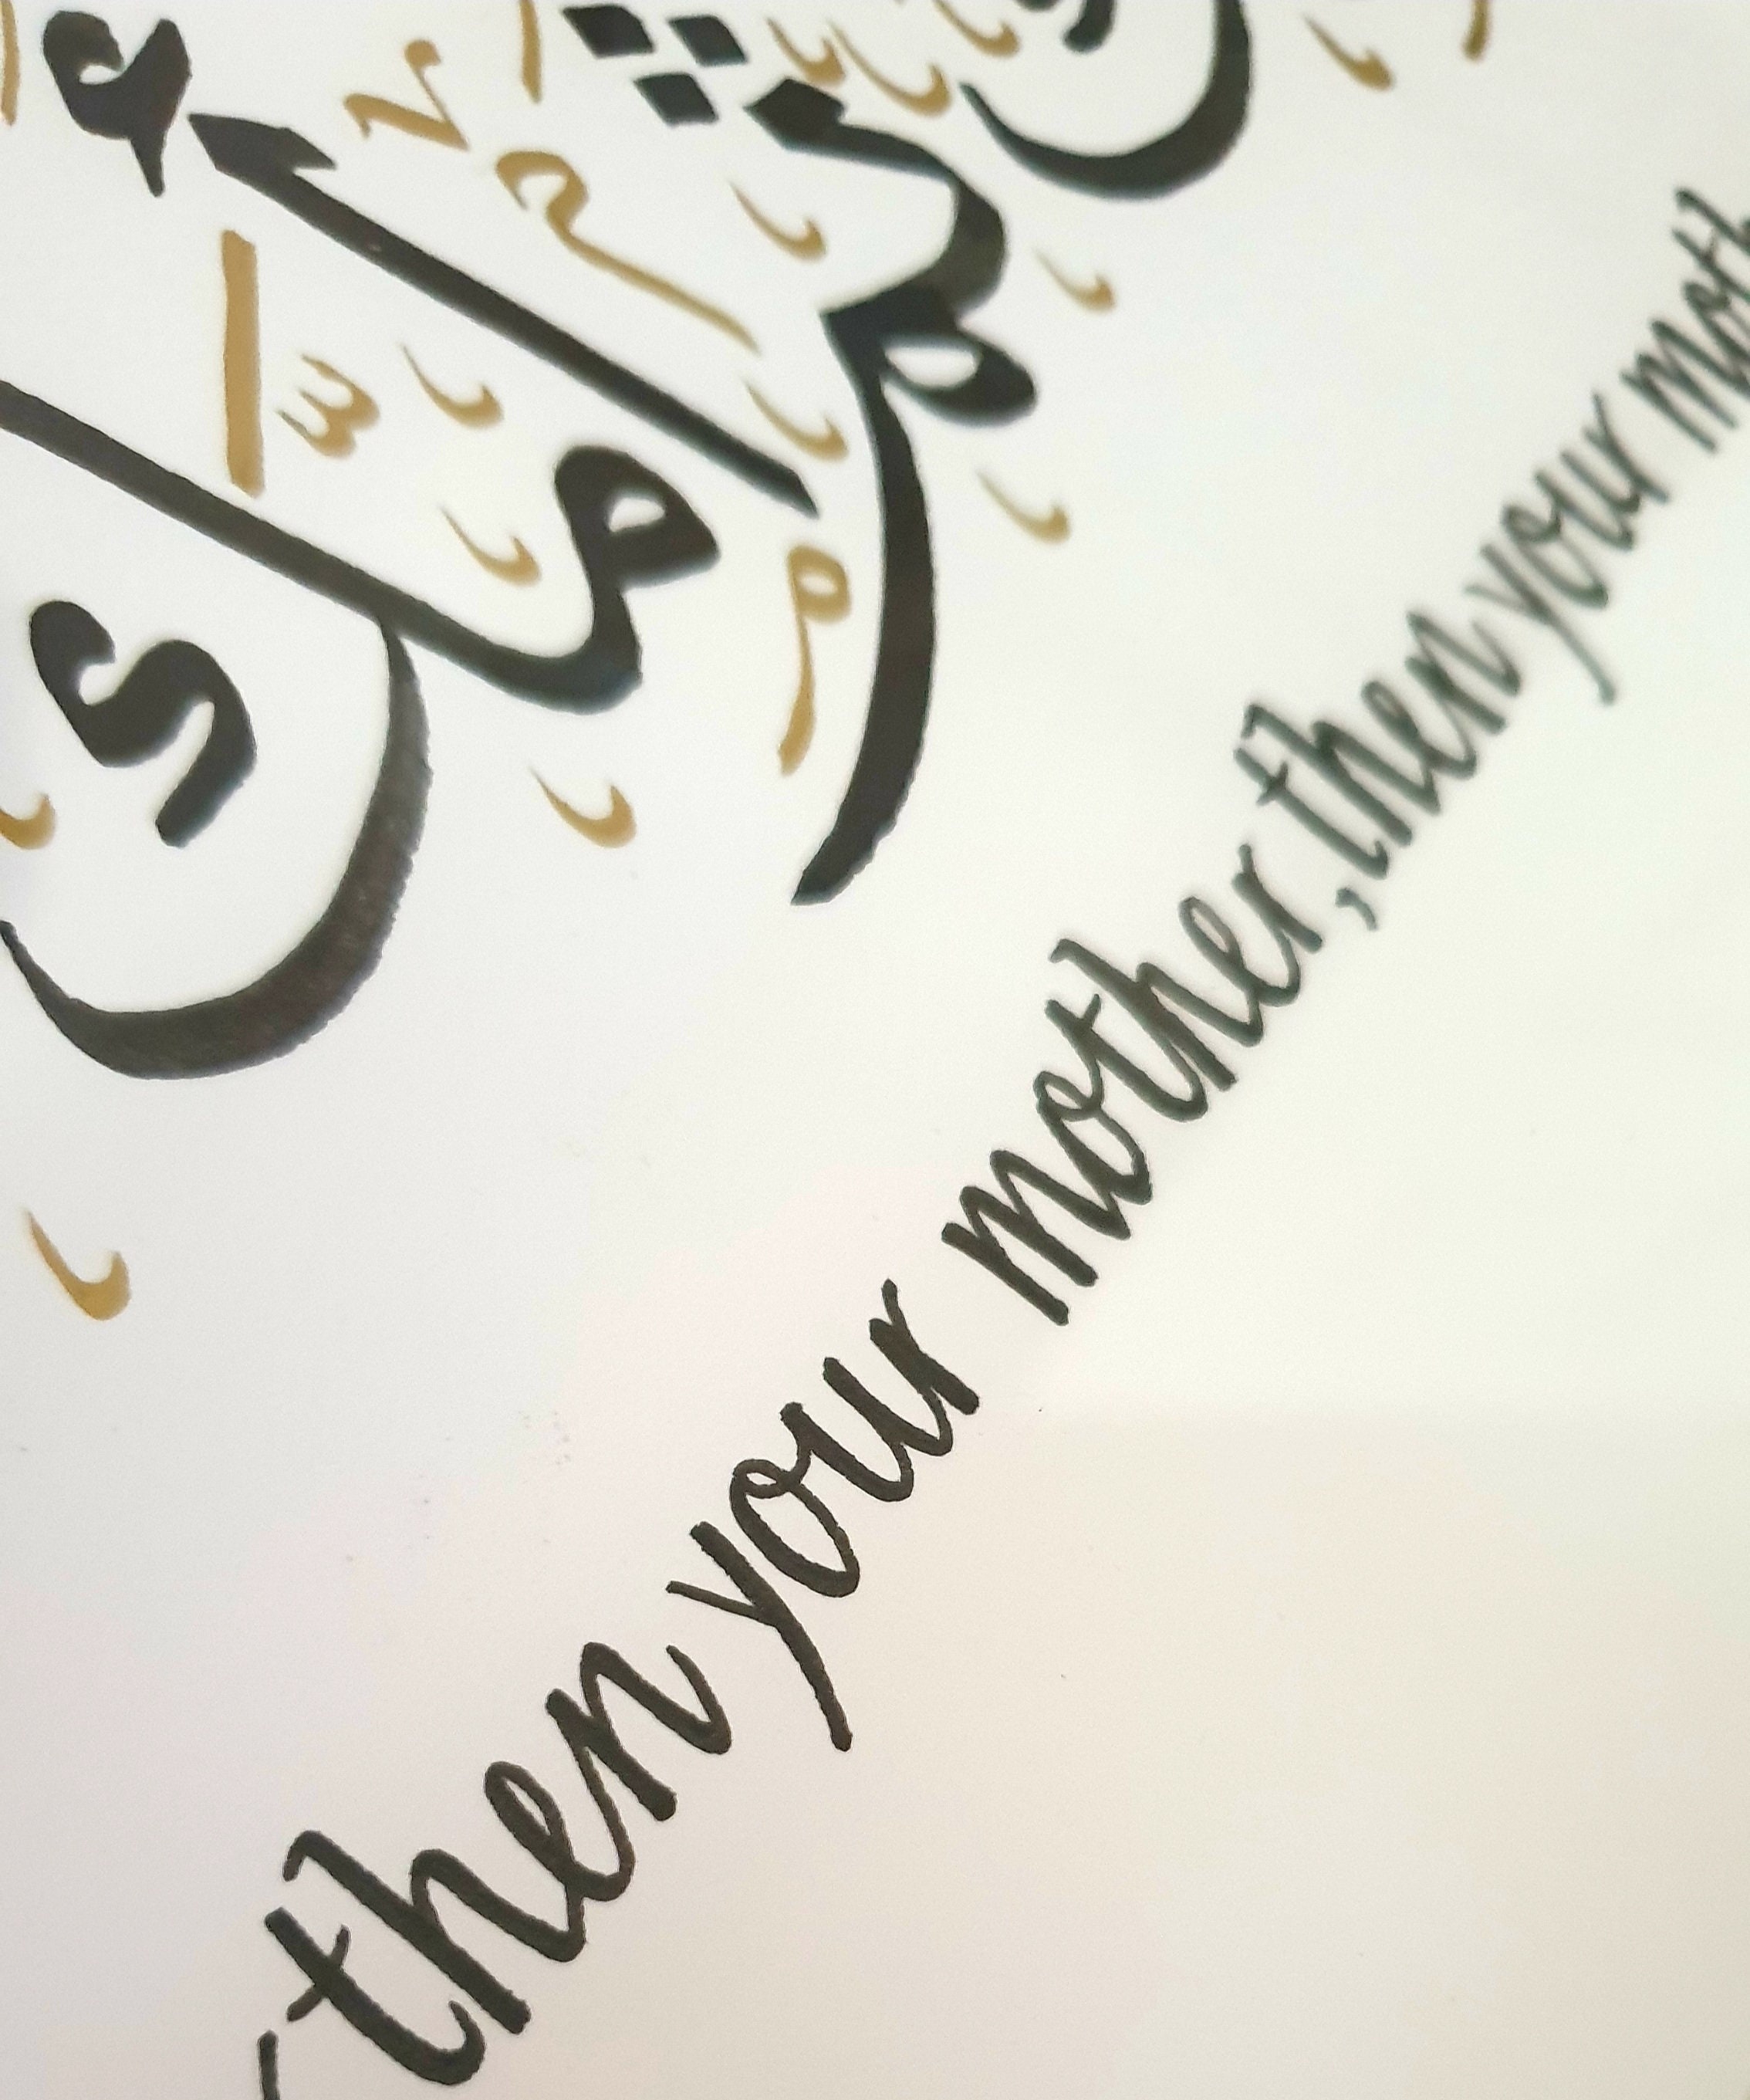 ثم أمك
then your mother, then your moth